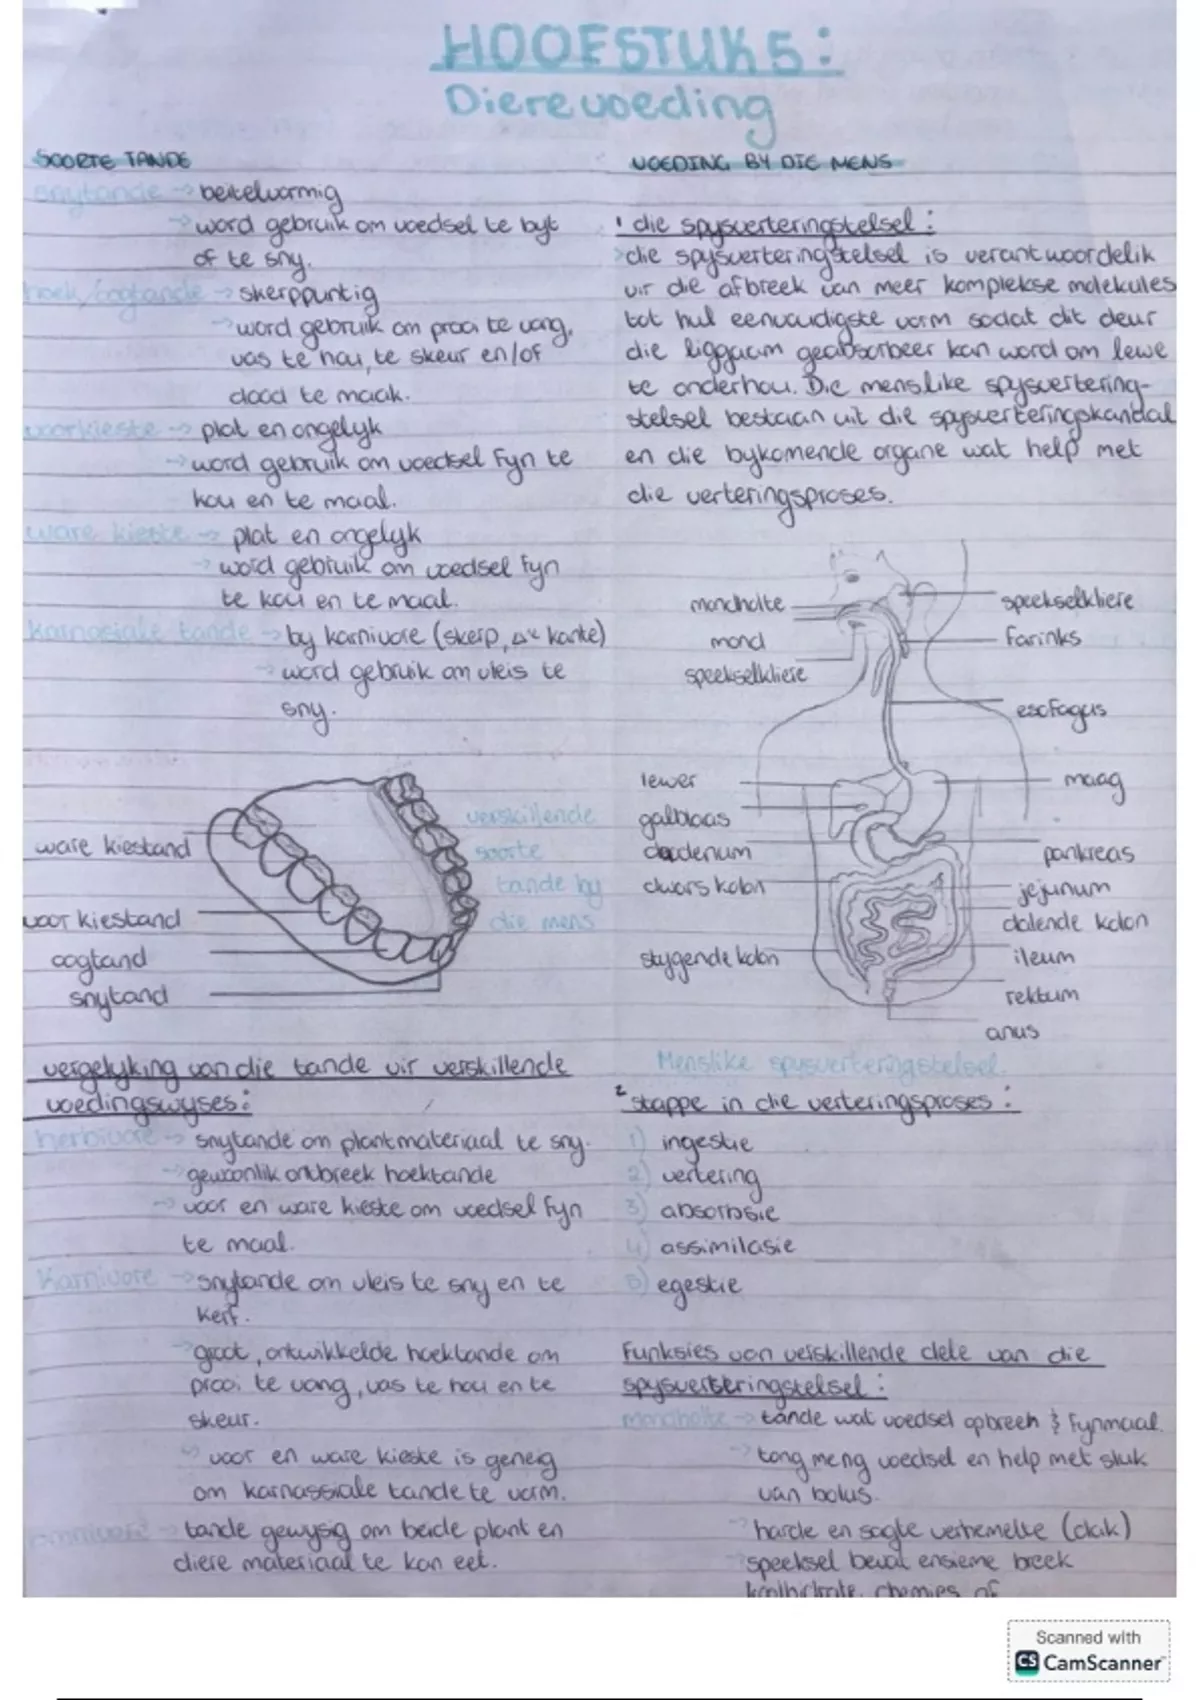 HOOFSTUK 5:
Dierevoeding
SOORTE TANDE
snytande → beitelvormig
→ word gebruik om voedsel te byt
of te sny.
hoek/oogtande → skerppuntig
→ word gebruik om prooi te vang,
vas te hou, te skeur en/of
dood te maak.
voorkieste → plat en ongelyk
→ word gebruik om voedsel fyn te
kou en te maal.
ware kieste → plat en ongelyk
→ word gebruik om voedsel fyn
te kou en te maal.
karnasiale tande → by karnivore (skerp, kante)
→ word gebruik om vleis te
sny.
ware kiestand
voor kiestand
oogtand
snytand
verskillende
soorte
tande by
die mens
vergelyking van die tande vir verskillende
voedingswyses:
herbivore → snytande om plantmateriaal te sny.
→ gewoonlik ontbreek hoektande
→ voor en ware kieste om voedsel fyn
te maal.
Karnivore → snytande om vleis te sny en te
kerf.
→ groot, ontwikkelde hoektande om
prooi te vang, vas te hou en te
skeur.
→ voor en ware kieste is geneig
om karnassiale tande te vorm.
omnivore → tande gewysig om beide plant en
diere materiaal te kan eet.
VOEDING BY DIE MENS
1 die spysverteringstelsel:
>die spysverteringstelsel is verantwoordelik
vir die afbreek van meer komplekse molekules
tot hul eenvoudigste vorm sodat dit deur
die liggaam geabsorbeer kan word om lewe
te onderhou. Die menslike spysvertering-
stelsel bestaan uit die spysverteringskandal
en die bykomende organe wat help met
die verteringsproses.
mondholte
mond
speekselkliere
speekselkliere
farinks
esofagus
lewer
galblaas
duodenum
dwars kolon
stygende kolon
maag
pankreas
jejunum
dalende kolon
ileum
rektum
anus
Menslike spysverteringstelsel.
2 stappe in die verteringsproses:
1) ingestie
2) vertering
3) absorbsie
4) assimilasie
5) egestie
Funksies van verskillende dele van die
spysverteringstelsel:
mondholte → tande wat voedsel opbreek & fynmaal.
→ tong meng voedsel en help met sluk
van bolus.
→ harde en sagte verhemelte (dak)
→ speeksel bevat ensieme breek
koolhidrate, chemies af
Scanned with
CS CamScanner